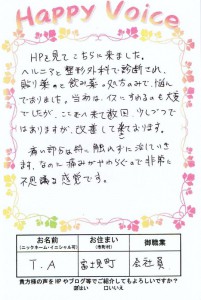 Happy Voice
HPを見てこちらに来ました。
ヘルニアと整形外科で診断され、
貼り薬と飲み薬の処方のみで、悩ん
でおりました。当初は、イスにすわるのも大変
でしたが、ここへ来て数回、少しづつで
はありますが、改善して来ております。
痛い部分は特に触れずに治していき
ます。なのに痛みがやわらぐので非常に
不思議な感覚です。
お名前
(ニックネーム・イニシャル可)
お住まい
(市町村)
御職業
T.A
富士見町
会社員
貴方様の声をHPやブログ等でご紹介してもよろしいですか？
はい
いいえ